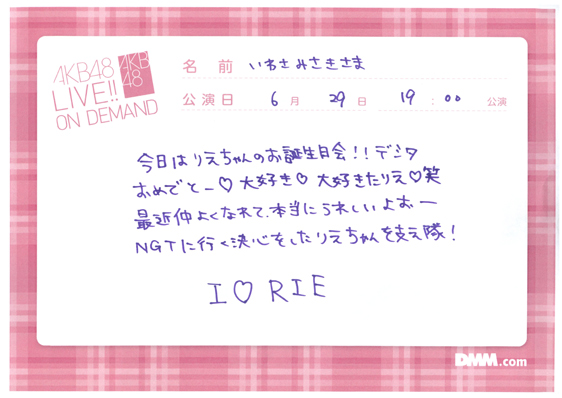 AKB48
LIVE!!
ON DEMAND
AKB
48
名 前 いわさみさきさま
公演日 6 月 29 日 19 : 00 公演
今日はりえちゃんのお誕生日会!!デシタ
おめでとー♡大好き♡大好きたりえ♡笑
最近仲よくなれて、本当にうれしいよおー
NGTに行く決心をしたりえちゃんを支え隊!
I♡RIE
DMM.com